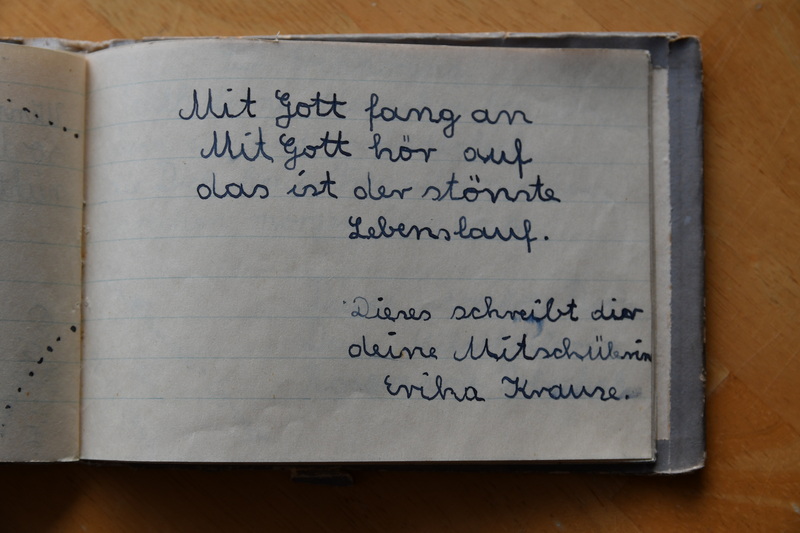 Mit Gott fang an
Mit Gott hör auf
das ist der stönste
Lebenslauf.
Dieses schreibt dier
deine Mitschülerin
Erika Krause.